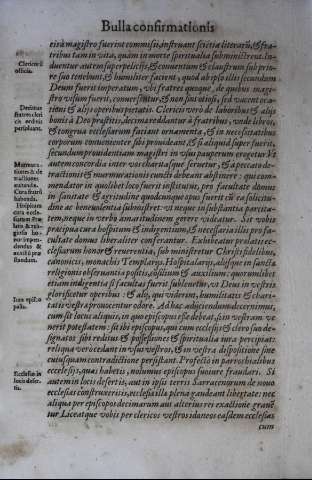 Bulla confirmationis
eis à magistro fuerint commissa, instruant scietia literarũ, & fra-
tribus tam in vita, quam in morte spiritualia subministrent. In-
duentur autem superpelliciis, & conuentum & claustrum sub prio-
re suo tenebunt, & humiliter facient, quod ab ipso illis secundum
Deum fuerit imperatum, vbi fratres quoque, de quibus magi-
stro visum fuerit, conuersentur, & non sint
otiosi, & aliis operibus pietatis. Clerici verò de laboribus & aliis
bonis à Deo praestitis, decimã reddant à fratribus, vnde libros,
& congrua ecclesiarum faciant ornamenta, & in necessitatibus
corporum conuenienter sibi prouideant, & si aliquid super fuerit,
secundum prouidentiam magistri in vsus pauperum erogetur. Vt
autem concordia inter vos charitasque seruetur, & à peccato de-
tractionis & murmurationis cuncti debeant abstinere: qui com-
mendator in quolibet loco fuerit institutus, pro facultate domus
in sanitate & aegritudine quod cuique opus fuerit cũ ea solicitu-
dine ac beneuolentia subministret: vt neque in substantia parcita-
tem, neque in verbo amaritudinem gerere videatur. Sit vobis
praecipua cura hospitum & indigentium, & necessaria illis pro fa-
cultate domus liberaliter conferantur. Exhibeatur praelatis ec-
clesiarum honor & reuerentia, subministretur Christi fidelibus,
canonicis, monachis, Templariis, Hospitalariis,
religionis obseruantia positis, cõsilium & auxilium: quorumlibet
etiam indigentia si facultas fuerit subleuetur, vt Deus in vestris
glorificetur operibus: & alij, qui viderint, humilitatis & chari-
tatis vestrae prouocentur odore. Ad haec adijciendum decernimus,
cum sit locus aliquis, in quo episcopus esse debeat, & in vestram ve-
nerit potestatem: sit ibi episcopus, qui cum ecclesiis & clero suo de-
signatos sibi reditus & possessiones & spiritualia iura percipiat:
reliqua verò cedant in vsus vestros, & in vestra dispositione sine
cuiusquam contradictione persistant. Profectò in parochialibus
ecclesiis, quas habetis, nolumus episcopos suo iure fraudari. Si
autem in locis desertis, aut in ipsis terris Sarracenorum de nouo
ecclesias construxeritis, ecclesiae illae plena gaudeant libertate: nec
aliqua per episcopos decimarum aut alterius rei exactione grauẽ-
tur. Liceatque vobis per clericos vestros idoneos easdem ecclesias
cum
Clericorũ
officia.
Decimas
fratres cleri
cis ordinis
persoluant.
Murmura-
tiones & de
tractiones
euitandæ.
Cura fratrũ
habenda.
Hospitum
cura eccle-
siarum Præ
latis & re-
ligiosis ho-
nor impen-
dendus &
auxiliũ præ
standum.
Iura episco
palia.
Ecclesiæ in
locis deser-
tis.